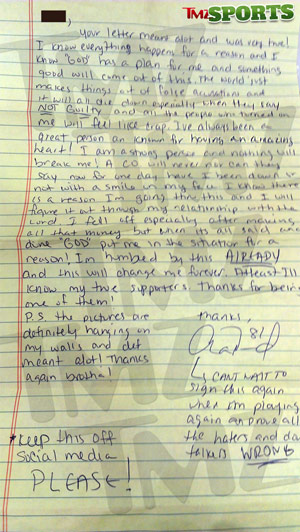 TMZ SPORTS
your letter meant alot and was very true!
I know everything happens for a reason and I
know "GOD" has a plan for me and something
good will come out of this. The world just
makes things out of false accusations and
it will all die down especially when they say
NOT GUILTY and all the people who turned on
me will feel like crap. I've always been a
great person an known for having an amazing
heart! I am a strong person and nothing will
break me! A CO will never nor can they
say now for one day have I been down or
not with a smile in my face. I know there
is a reason I'm going thru this and I will
figure it out through my relationship with the
Lord. I fell off especially after making
all that money but when its all said and
done "GOD" put me in the situation for a
reason! Im humbled by this ALREADY
And this will change me forever. Atleast Ill
Know my true supporters. Thanks for being
one of them!
P.S. the pictures are
definitely hanging on
my walls and def
meant alot! Thanks
again brotha!
Thanks,
81
I CANT WAIT TO
sign this again
when im playing
again an prove all
the haters and
WRONG
*Keep this off
social media
PLEASE!
TMZ